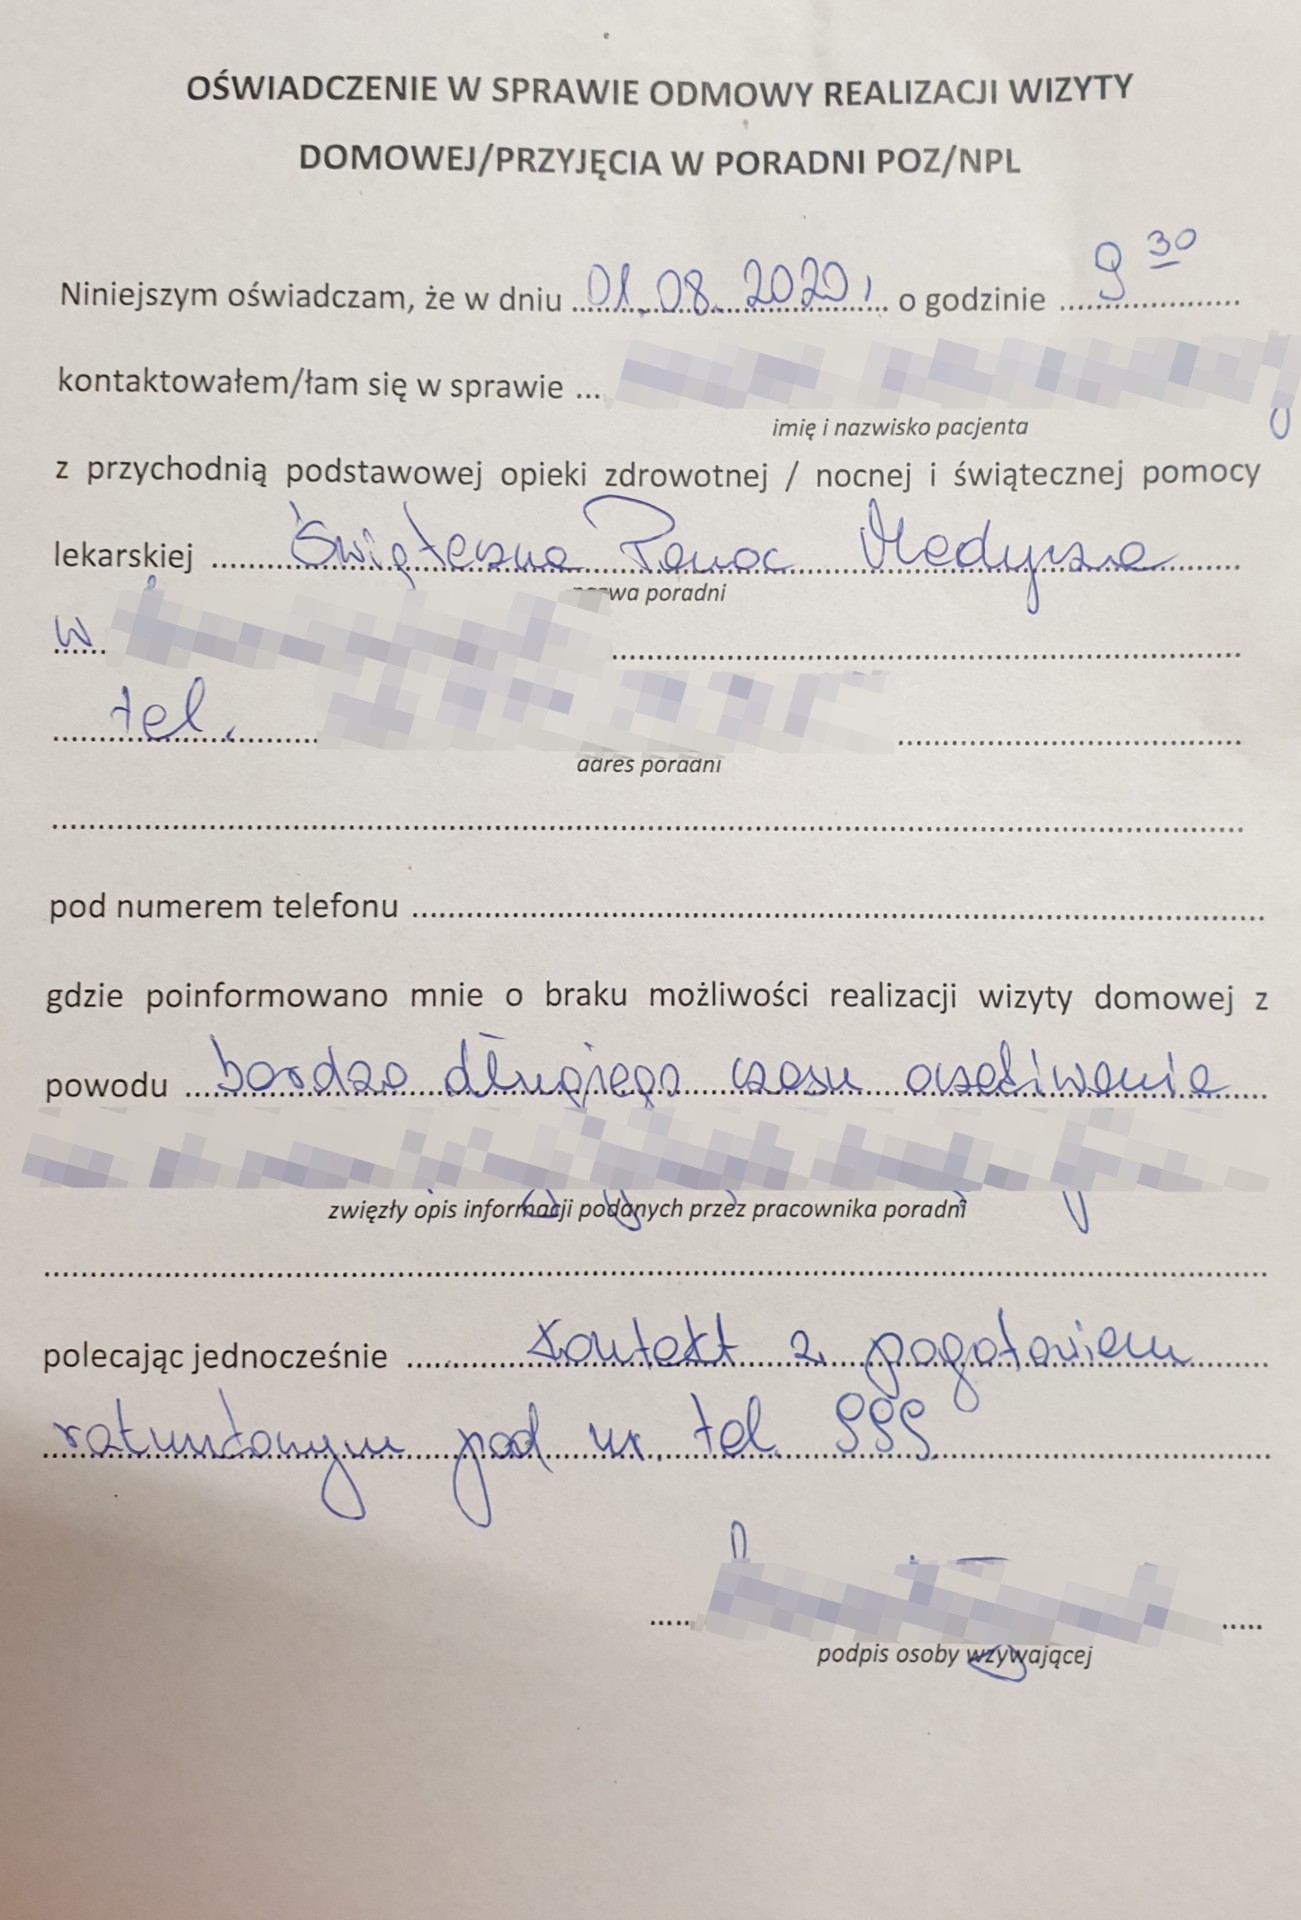 OŚWIADCZENIE W SPRAWIE ODMOWY REALIZACJI WIZYTY
DOMOWEJ/PRZYJĘCIA W PORADNI POZ/NPL
Niniejszym oświadczam, że w dniu 01.08.2020r o godzinie 9 30
kontaktowałem/łam się w sprawie ...
imię i nazwisko pacjenta
z przychodnią podstawowej opieki zdrowotnej / nocnej i świątecznej pomocy
lekarskiej Świąteczna Pomoc Medyczna
nazwa poradni
w
tel.
adres poradni
pod numerem telefonu
gdzie poinformowano mnie o braku możliwości realizacji wizyty domowej z
powodu bardzo długiego czasu oczekiwania
zwięzły opis informacji podanych przez pracownika poradni
polecając jednocześnie kontakt z pogotowiem
ratunkowym pod nr. tel. 999
podpis osoby wzywającej